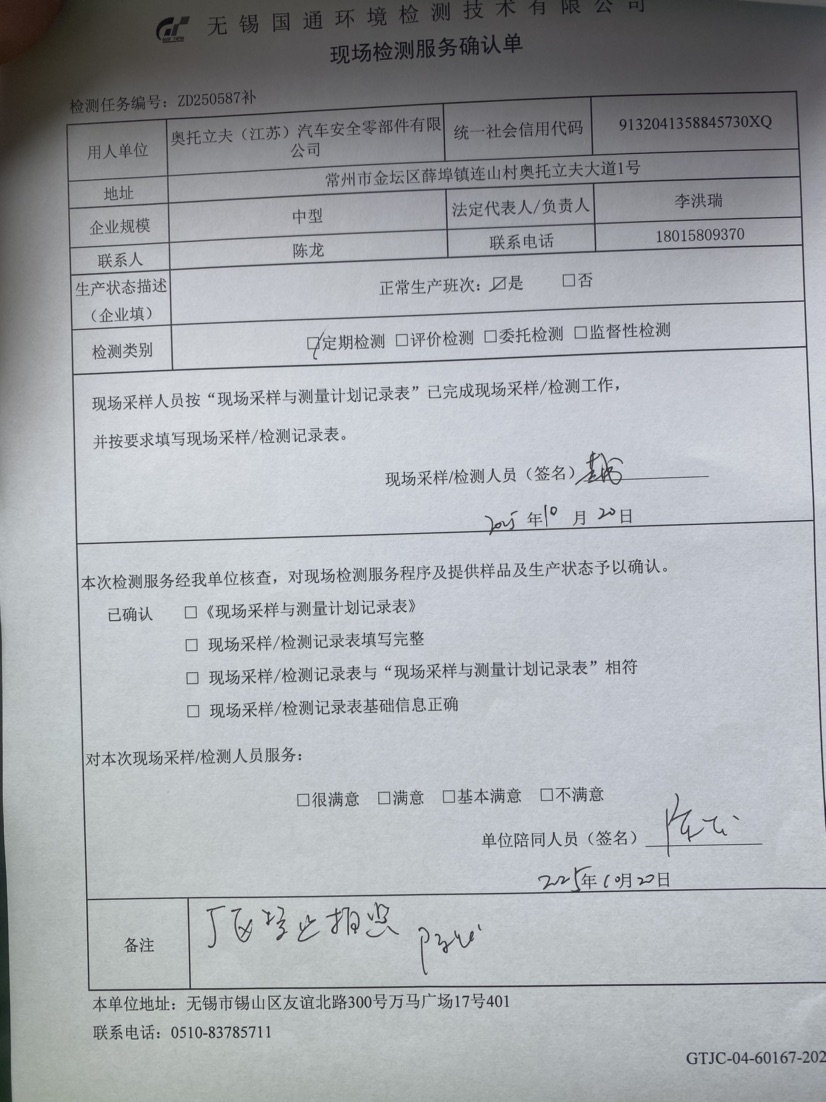 无锡国通环境检测技术有限公司
现场检测服务确认单
检测任务编号：ZD250587补
用人单位 奥托立夫（江苏）汽车安全零部件有限公司 统一社会信用代码 9132041358845730XQ
地址 常州市金坛区薛埠镇连山村奥托立夫大道1号
企业规模 中型 法定代表人/负责人 李洪瑞
联系人 陈龙 联系电话 18015809370
生产状态描述（企业填） 正常生产班次：☑是 □否
检测类别 ☑定期检测 □评价检测 □委托检测 □监督性检测
现场采样人员按“现场采样与测量计划记录表”已完成现场采样/检测工作，
并按要求填写现场采样/检测记录表。
现场采样/检测人员（签名）
2025年10月20日
本次检测服务经我单位核查，对现场检测服务程序及提供样品及生产状态予以确认。
已确认 □《现场采样与测量计划记录表》
□ 现场采样/检测记录表填写完整
□ 现场采样/检测记录表与“现场采样与测量计划记录表”相符
□ 现场采样/检测记录表基础信息正确
对本次现场采样/检测人员服务：
□很满意 □满意 □基本满意 □不满意
单位陪同人员（签名）
2025年10月20日
备注 厂区禁止拍照
本单位地址：无锡市锡山区友谊北路300号万马广场17号401
联系电话：0510-83785711
GTJC-04-60167-202